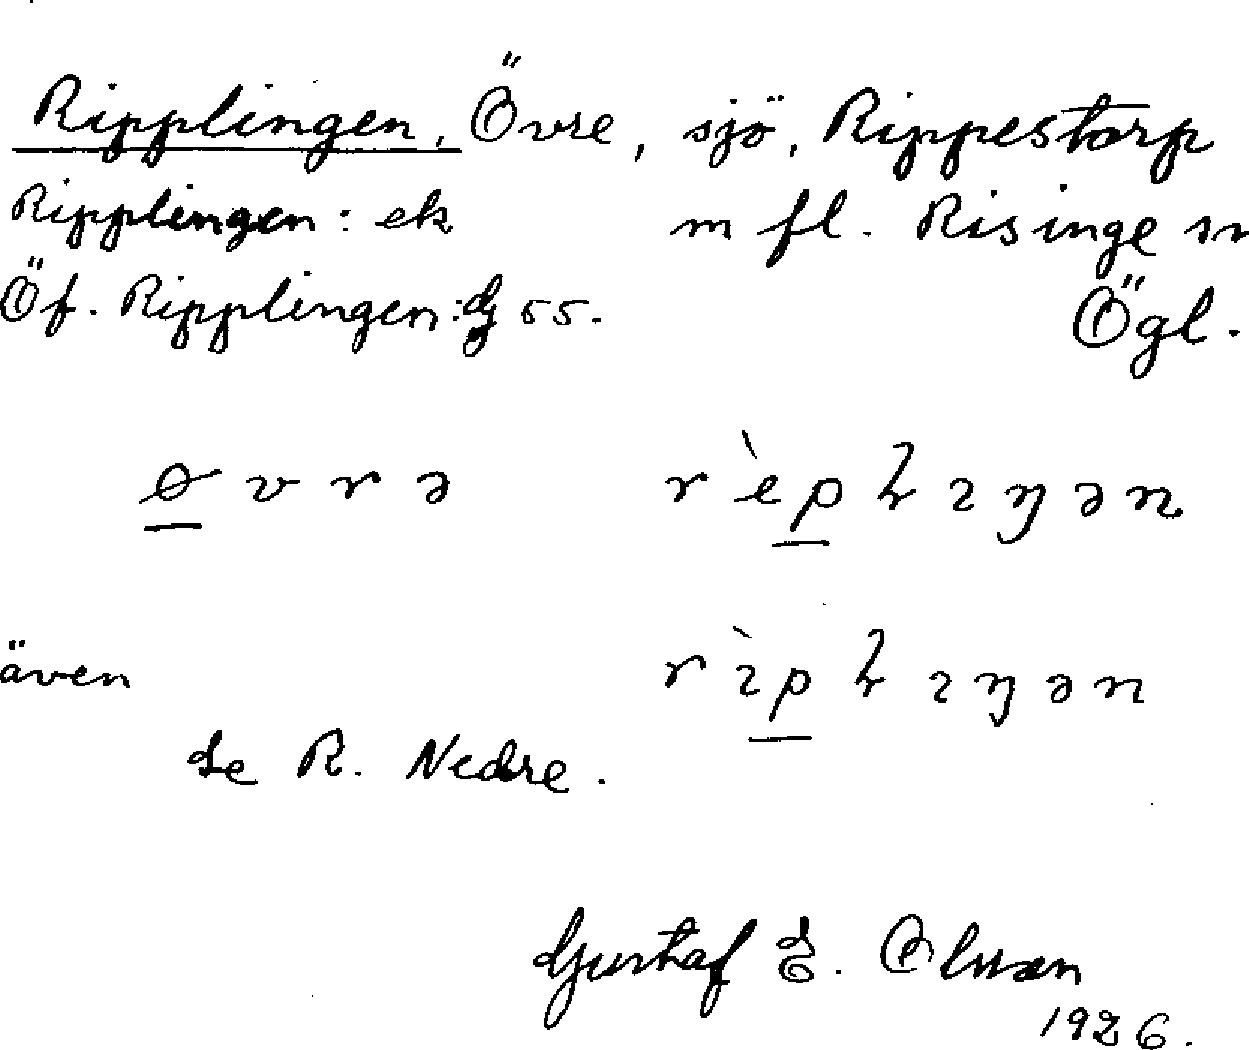 Ripplingen, Övre, sjö, Rippestorp
Ripplingen: ek m fl. Risinge sn
Öf. Ripplingen: G 55. Ögl.
även
Se R. Nedre.
Gustaf E. Olsson
1926.